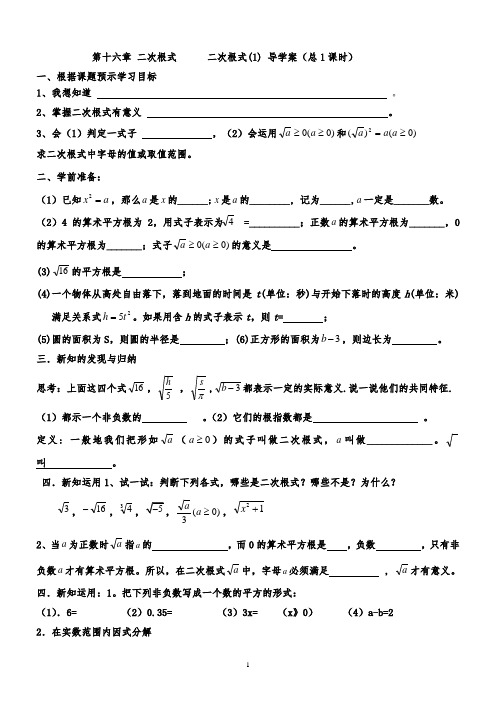 第十六章 二次根式 二次根式(1) 导学案（总1课时）
一、根据课题预示学习目标
1、我想知道 ________ 。
2、掌握二次根式有意义 ________ 。
3、会（1）判定一式子 ________ ，（2）会运用√a ≥ 0(a ≥ 0) 和 (√a)² = a(a ≥ 0)
求二次根式中字母的值或取值范围。
二、学前准备：
（1）已知 x² = a，那么 a 是 x 的______；x 是 a 的________，记为______，a 一定是_______数。
（2）4 的算术平方根为 2，用式子表示为√4 =__________；正数 a 的算术平方根为_______，0
的算术平方根为_______；式子√a ≥ 0(a ≥ 0) 的意义是 ________ 。
(3)√16 的平方根是 ________ ；
(4)一个物体从高处自由落下，落到地面的时间是 t(单位：秒)与开始下落时的高度 h(单位：米)
满足关系式 h = 5t²。如果用含 h 的式子表示 t，则 t= ________ ；
(5)圆的面积为 S，则圆的半径是 ________ ；(6)正方形的面积为 b − 3，则边长为 ________ 。
三．新知的发现与归纳
思考：上面这四个式√16，√(h/5)，√(s/π)，√(b−3)都表示一定的实际意义.说一说他们的共同特征.
（1）都示一个非负数的 ________ 。（2）它们的根指数都是 ________ 。
定义：一般地我们把形如 √a（a ≥ 0）的式子叫做二次根式，a 叫做____________。√
叫________ 。
四．新知运用 1、试一试：判断下列各式，哪些是二次根式？哪些不是？为什么？
√3，−√16，∛4，√−5，√a/3 (a ≥ 0)，√(x² + 1)
2、当 a 为正数时 √a 指 a 的 ________ ，而 0 的算术平方根是 ____ ，负数 ________ ，只有非
负数 a 才有算术平方根。所以，在二次根式 √a 中，字母 a 必须满足 ________ ，√a 才有意义。
四．新知运用：1。把下列非负数写成一个数的平方的形式：
（1）．6= （2）0.35= （3）3x= （x》0） （4）a-b=2
2．在实数范围内因式分解
1